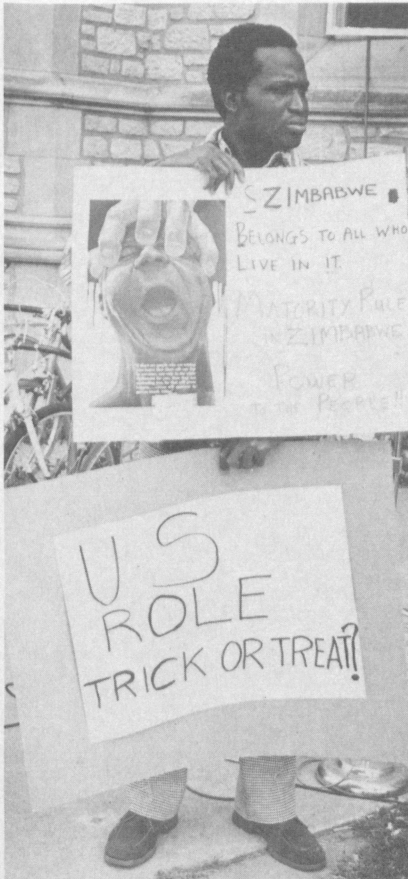 ZIMBABWE
BELONGS TO ALL WHO
LIVE IN IT.
MAJORITY RULE
IN ZIMBABWE
POWER
TO THE PEOPLE!!
U S
ROLE
TRICK OR TREAT?